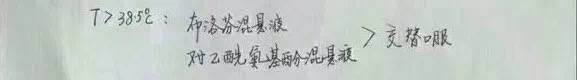 T>38.5℃: 布洛芬混悬液
对乙酰氨基酚分混悬液 > 交替口服